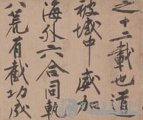 之十二載也道
被域中威加
海外六合同軌
八荒有截功成